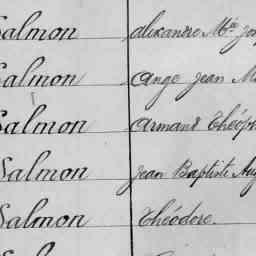 Salmon alexandre Mie Jos
Salmon Ange Jean M
Salmon Armand Théoph
Salmon Jean Baptiste Aug
Salmon Théodore.